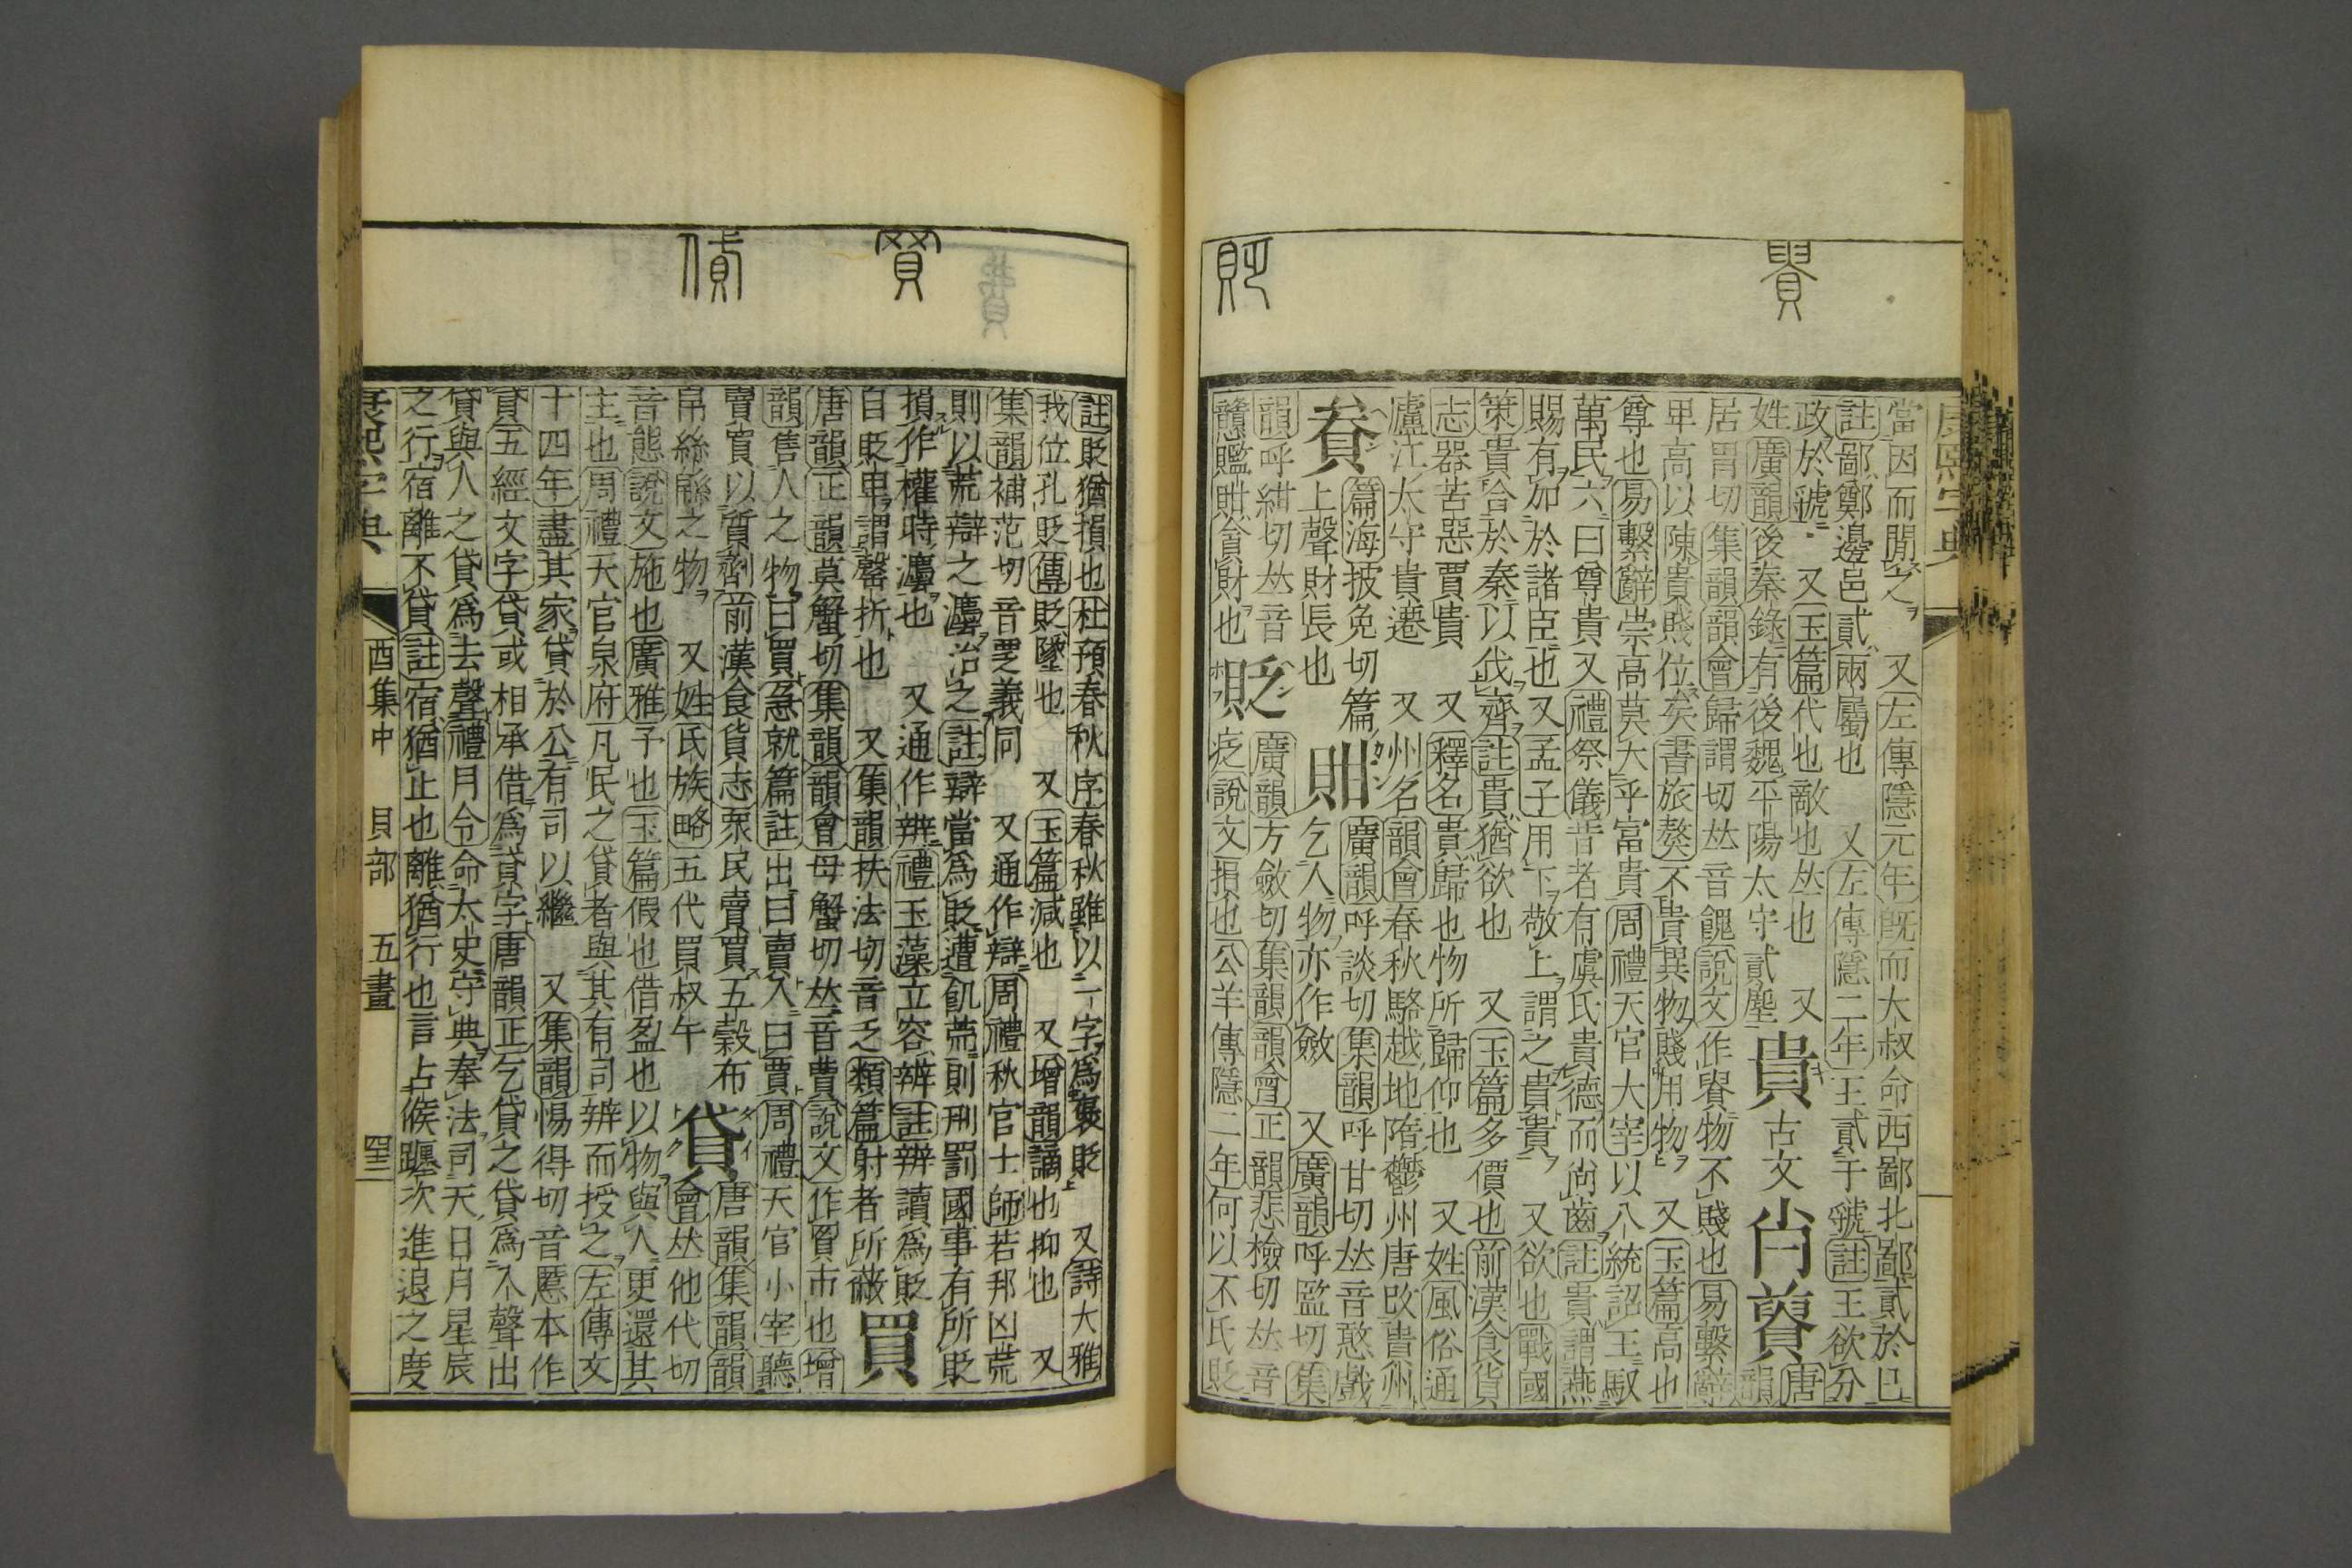 康熙字典
當因而閒之 又左傳隱元年旣而大叔命西鄙北鄙貳於已
註鄙鄭邊邑貳兩屬也 又左傳隱二年王貳于虢註王欲分
政於虢 又玉篇代也敵也𠀤也 又
姓廣韻後秦錄有後魏平陽太守貳塵
貴 古文 唐韻
居胃切集韻韻會歸謂切𠀤音餽說文作䝿物不賤也易繫辭
甲高以陳貴賤位矣書旅獒不貴異物賤用物 又玉篇高也
尊也易繫辭崇高莫大乎富貴周禮天官大宰以八統詔王馭
萬民六曰尊貴又禮祭儀昔者有虞氏貴德而尚齒註貴謂燕
賜有加於諸臣也又孟子用下敬上謂之貴貴 又欲也戰國
策貴合於秦以伐齊註貴猶欲也 又玉篇多價也前漢食貨
志器苦惡賈貴 又釋名貴歸也物所歸仰也 又姓風俗通
廬江太守貴遷 又州名韻會春秋駱越地隋鬱州唐改貴州
篇海披免切篇
上聲財長也
廣韻呼談切集韻呼甘切𠀤音憨戲
乞人物亦作 又廣韻呼監切集
韻呼紺切𠀤音
戇 貪財也
貶 廣韻方斂切集韻韻會正韻悲檢切𠀤音
疺說文損也公羊傳隱二年何以不氏貶
註貶猶損也杜預春秋序春秋雖以一字爲襃貶 又詩大雅
我位孔貶傳貶墜也 又玉篇減也 又增韻謫也抑也 又
集韻補范切音 義同 又通作辯周禮秋官士師若邦凶荒
則以荒辯之灋治之註辯當爲貶遭飢荒則刑罰國事有所貶
損作權時灋也 又通作辨禮玉藻立容辨註辨讀爲貶
自貶卑謂罄折也 又集韻扶法切音乏類篇射者所蔽
買
唐韻正韻莫蟹切集韻韻會母蟹切𠀤音 說文作 市也增
韻售人之物曰買急就篇註出曰賣入曰買周禮天官小宰聽
賣買以質劑前漢食貨志衆民賣買五穀布
帛絲緜之物 又姓氏族略五代買叔午
貸 唐韻集韻韻
會𠀤他代切
音態說文施也廣雅予也玉篇假也借盈也以物與人更還其
主也周禮天官泉府凡民之貸者與其有司辨而授之左傳文
十四年盡其家貸於公有司以繼 又集韻惕得切音慝本作
貣五經文字貸或相承借爲貣字唐韻正乞貸之貸爲入聲出
貸與人之貸爲去聲禮月令命太史守典奉法司天日月星辰
之行宿離不貸註宿猶止也離猶行也言占候躔次進退之度
康熙字典 酉集中 貝部 五畫